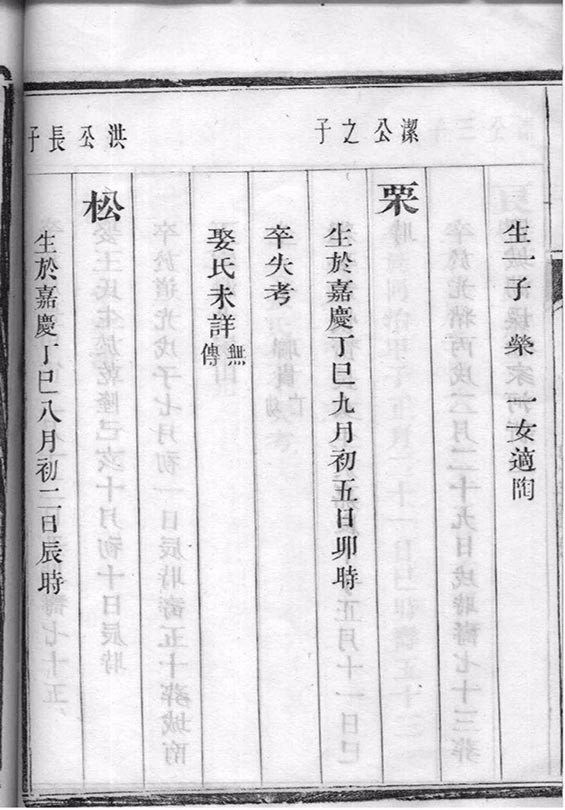 生一子榮一女適閻
潔公之子
栗
生於嘉慶丁巳九月初五日卯時
卒失考
娶氏未詳無傳
洪公長子
松
生於嘉慶丁巳八月初二日辰時